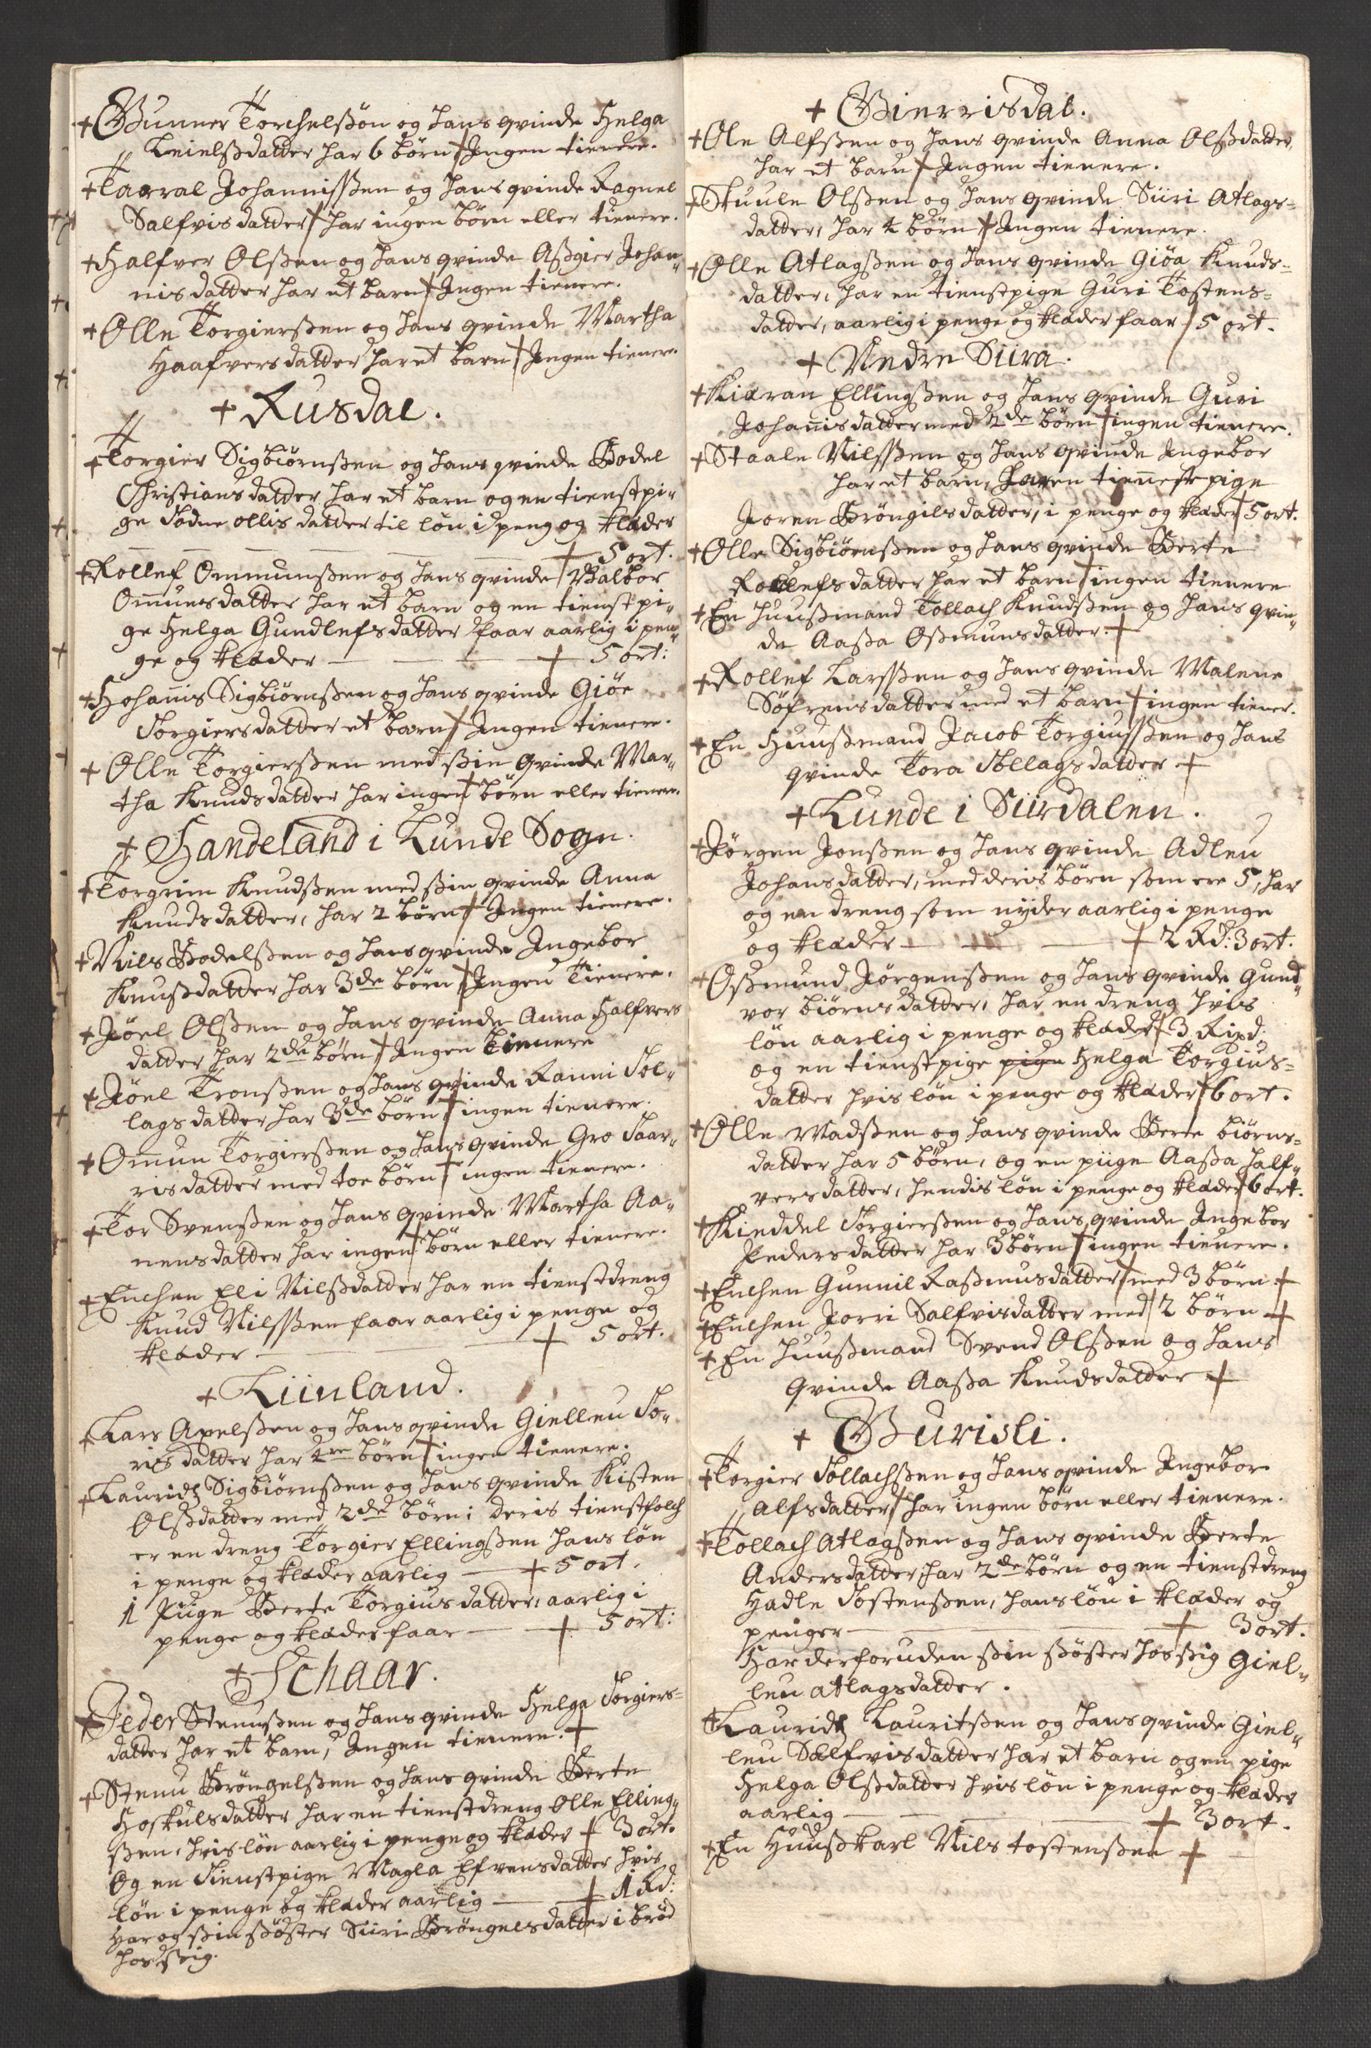 + Gunner Torchelßøn og hans qvinde Helga
Leielsdatter har 6 børn + Ingen tienere.
+ Taaral Johannisßen og hans qvinde Ragnel
Salfvisdatter + har ingen børn eller tienere.
+ Halfver Olsßen og hans qvinde Aßgier Johan-
nisdatter har et barn + Ingen tienere.
+ Olle Torgiersßen og hans qvinde Martha
Haafversdatter har et barn + Ingen tienere.
+ Rusdal.
+ Torgier Sigbiørnsßen og hans qvinde Bodel
Christiansdatter har et barn og en tienstpi-
ge Sødne ollisdatter til løn i peng og klæder
+ 5 ort.
+ Rollef Ommunsßen og hans qvinde Valbor
Om̅unsdatter har et barn og en tienstpi-
ge Helga Gundlefsdatter faar aarlig i pen-
ge og klæder + 5 ort:
+ Johan̅is Sigbiørnsßen og hans qvinde Giøe
Torgiersdatter et barn + Ingen tienere.
+ Olle Torgiersßen med sßin qvinde Mar-
tha Knudsdatter har ingen + børn eller tienere.
+ Handeland i Lunde Sogn.
+ Torgrim Knudsßen med sßin qvinde Anna
Knudsdatter, har 2 børn + Ingen tienere.
+ Nils Bodelsßen og hans qvinde Ingebor
Knußdatter har 3de børn + Ingen Tienere.
+ Jøel Olsßen og hans qvinde Anna Halfvers
datter har 2de børn + Ingen Tienere
+ Jøel Tronsßen og hans qvinde Ranni Tol-
lagsdatter har 3de børn + ingen tienere.
+ Om̅un Torgiersßen og hans qvinde Gro Taar-
risdatter med toe børn + ingen tienere.
+ Tor Svensßen og hans qvinde Martha Aa-
nensdatter har ingen + børn eller tienere.
+ Enchen Eli Nilsdatter har en tienstdreng
Knud Nilsßen faar aarlig i penge og
klæder + 5 ort.
+ Liinland.
+ Lars Apelsßen og hans qvinde Gielleu To-
risdatter har 4re børn + ingen tienere.
+ Laurids Sigbiørnsßen og hans qvinde Kisten
Olsdatter med 2de børn: deris tienstfolch
er en dreng Torgier Ellingsßen hans løn
i penge og klæder aarlig + 5 ort.
1 Piige Berte Torgiusdatter, aarlig i
penge og klæder faar + 5 ort:
+ Schaar.
+ Peder Stenusßen og hans qvinde Helga Torgiers-
datter har et barn, Ingen tienere. +
+ Stenu Brøngelsßen og hans qvinde Berte
Hoskulsdatter har en tienstdreng Olle Elling-
sßen, hvis løn aarlig i penge og klæder + 3 ort.
Og en Tienstpige Magla Efvensdatter hvis
løn i penge og klæder aarlig + 1 Rd:
Har og sßin sßøster Siiri Brøngelsdatter i brød
hos sßig.
+ Gierrisdal.
+ Ole Alfsßen og hans qvinde Anna Olsdatter
har et barn + Ingen tienere.
+ Skuule Olsßen og hans qvinde Siiri Atlags-
datter, har 4 børn + Ingen tienere.
+ Olle Atlagsßen og hans qvinde Giøa Knuds-
datter, har en tienstpige Guri Tostens-
datter, aarlig i penge og klæder faar + 5 ort.
+ Nedre Siira.
+ Kiæran Ellingsßen og hans qvinde Guri
Johan̅isdatter med 2de børn + ingen tienere.
+ Staale Nilsßen og hans qvinde Ingebor
har et barn, har en tieneste pige
Joren Brøngilsdatter, i penge og klæder + 5 ort.
+ Olle Sigbiørnsßen og hans qvinde Berte
Rollefsdatter har et barn + ingen tienere
+ En huußmand Tollach Knudsßen og hans qvin-
de Aaßa Oßmunsdatter. +
+ Rollef Larsßen og hans qvinde Malene
Søfrensdatter med et barn + ingen tiener.
+ En Huußmand Jacob Torgiusßen og hans
qvinde Tora Tollagsdatter +
+ Lunde i Siirdalen.
+ Jørgen Jonsßen og hans qvinde Adleu
Johansdatter, med deris børn som ere 5, har
og en dreng som nyder aarlig i penge
og klæder + 2 Rd: 3 ort.
+ Oßmund Jørgensßen og hans qvinde Gund-
vor biørnsdatter, har en dreng hvis
løn aarlig i penge og klæder + 3 Rixd:
og en tienstpige pige Helga Torgius-
datter hvis løn i penge og klæder + 6 ort.
+ Olle Madsßen og hans qvinde Berte biørns-
datter har 5 børn, og en piige Aaßa Half-
versdatter, hendis løn i penge og klæder + 6 ort.
+ Kieddel Torgiersßen og hans qvinde Ingebor
Pedersdatter har 3 børn + ingen tienere.
+ Enchen Gunnil Raßmusdatter + med 3 børn +
+ Enchen Jorri Salfvisdatter med 2 børn +
+ En huußmand Svend Olsßen og hans
Qvinde Aaßa Knudsdatter +
+ Gurisli.
+ Torgier Tollachsßen og hans qvinde Ingebor
Alfsdatter + har ingen børn eller tienere.
+ Tollach Atlagsßen og hans qvinde Berte
Andersdatter, har 2de børn og en tienstdreng
Hadle Tostensßen, hans løn i klæder og
penger + 3 ort.
Har der foruden sßin sßøster hos sßig Giel-
leu Atlagsdatter.
+ Laurids Lauritsßen og hans qvinde Giel-
leu Salfvisdatter har et barn og en pige
Helga Olsdatter hvis løn i penge og klæder
aarlig + 3 ort.
+ En Huußkarl Nils tostensßen +